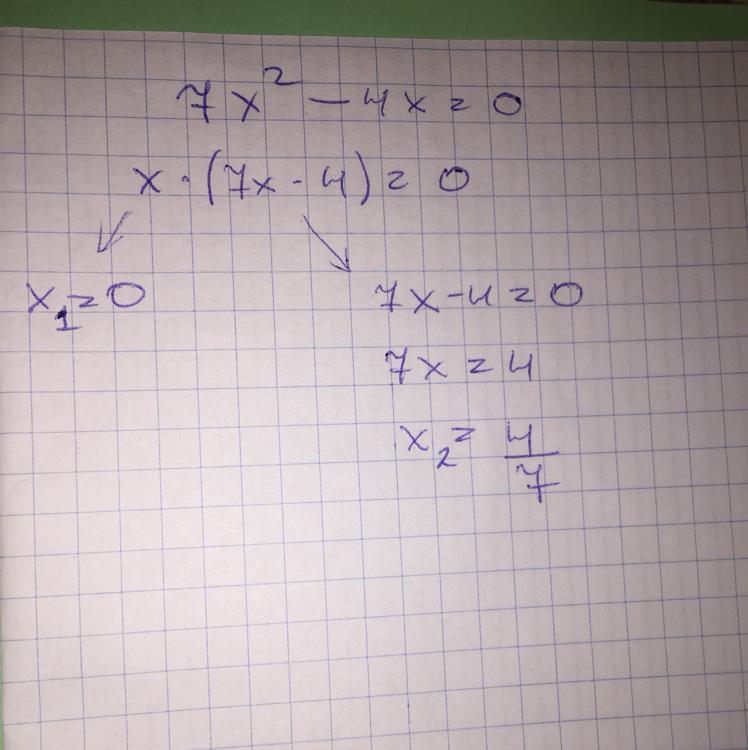 7x² - 4x = 0
x · (7x - 4) = 0
x₁ = 0
7x - 4 = 0
7x = 4
x₂ = 4/7